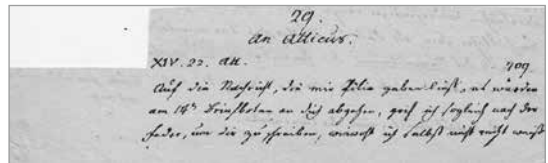 29.
An Atticus.
XIV. 22. Att. 709
Auf die Nachricht, die mir Pilia geben ließ, es würden
am 14ⁿ Briefboten an dich abgehen, greif ich sogleich nach der
Feder, um dir zu schreiben, wiewohl ich selbst nicht recht weiß